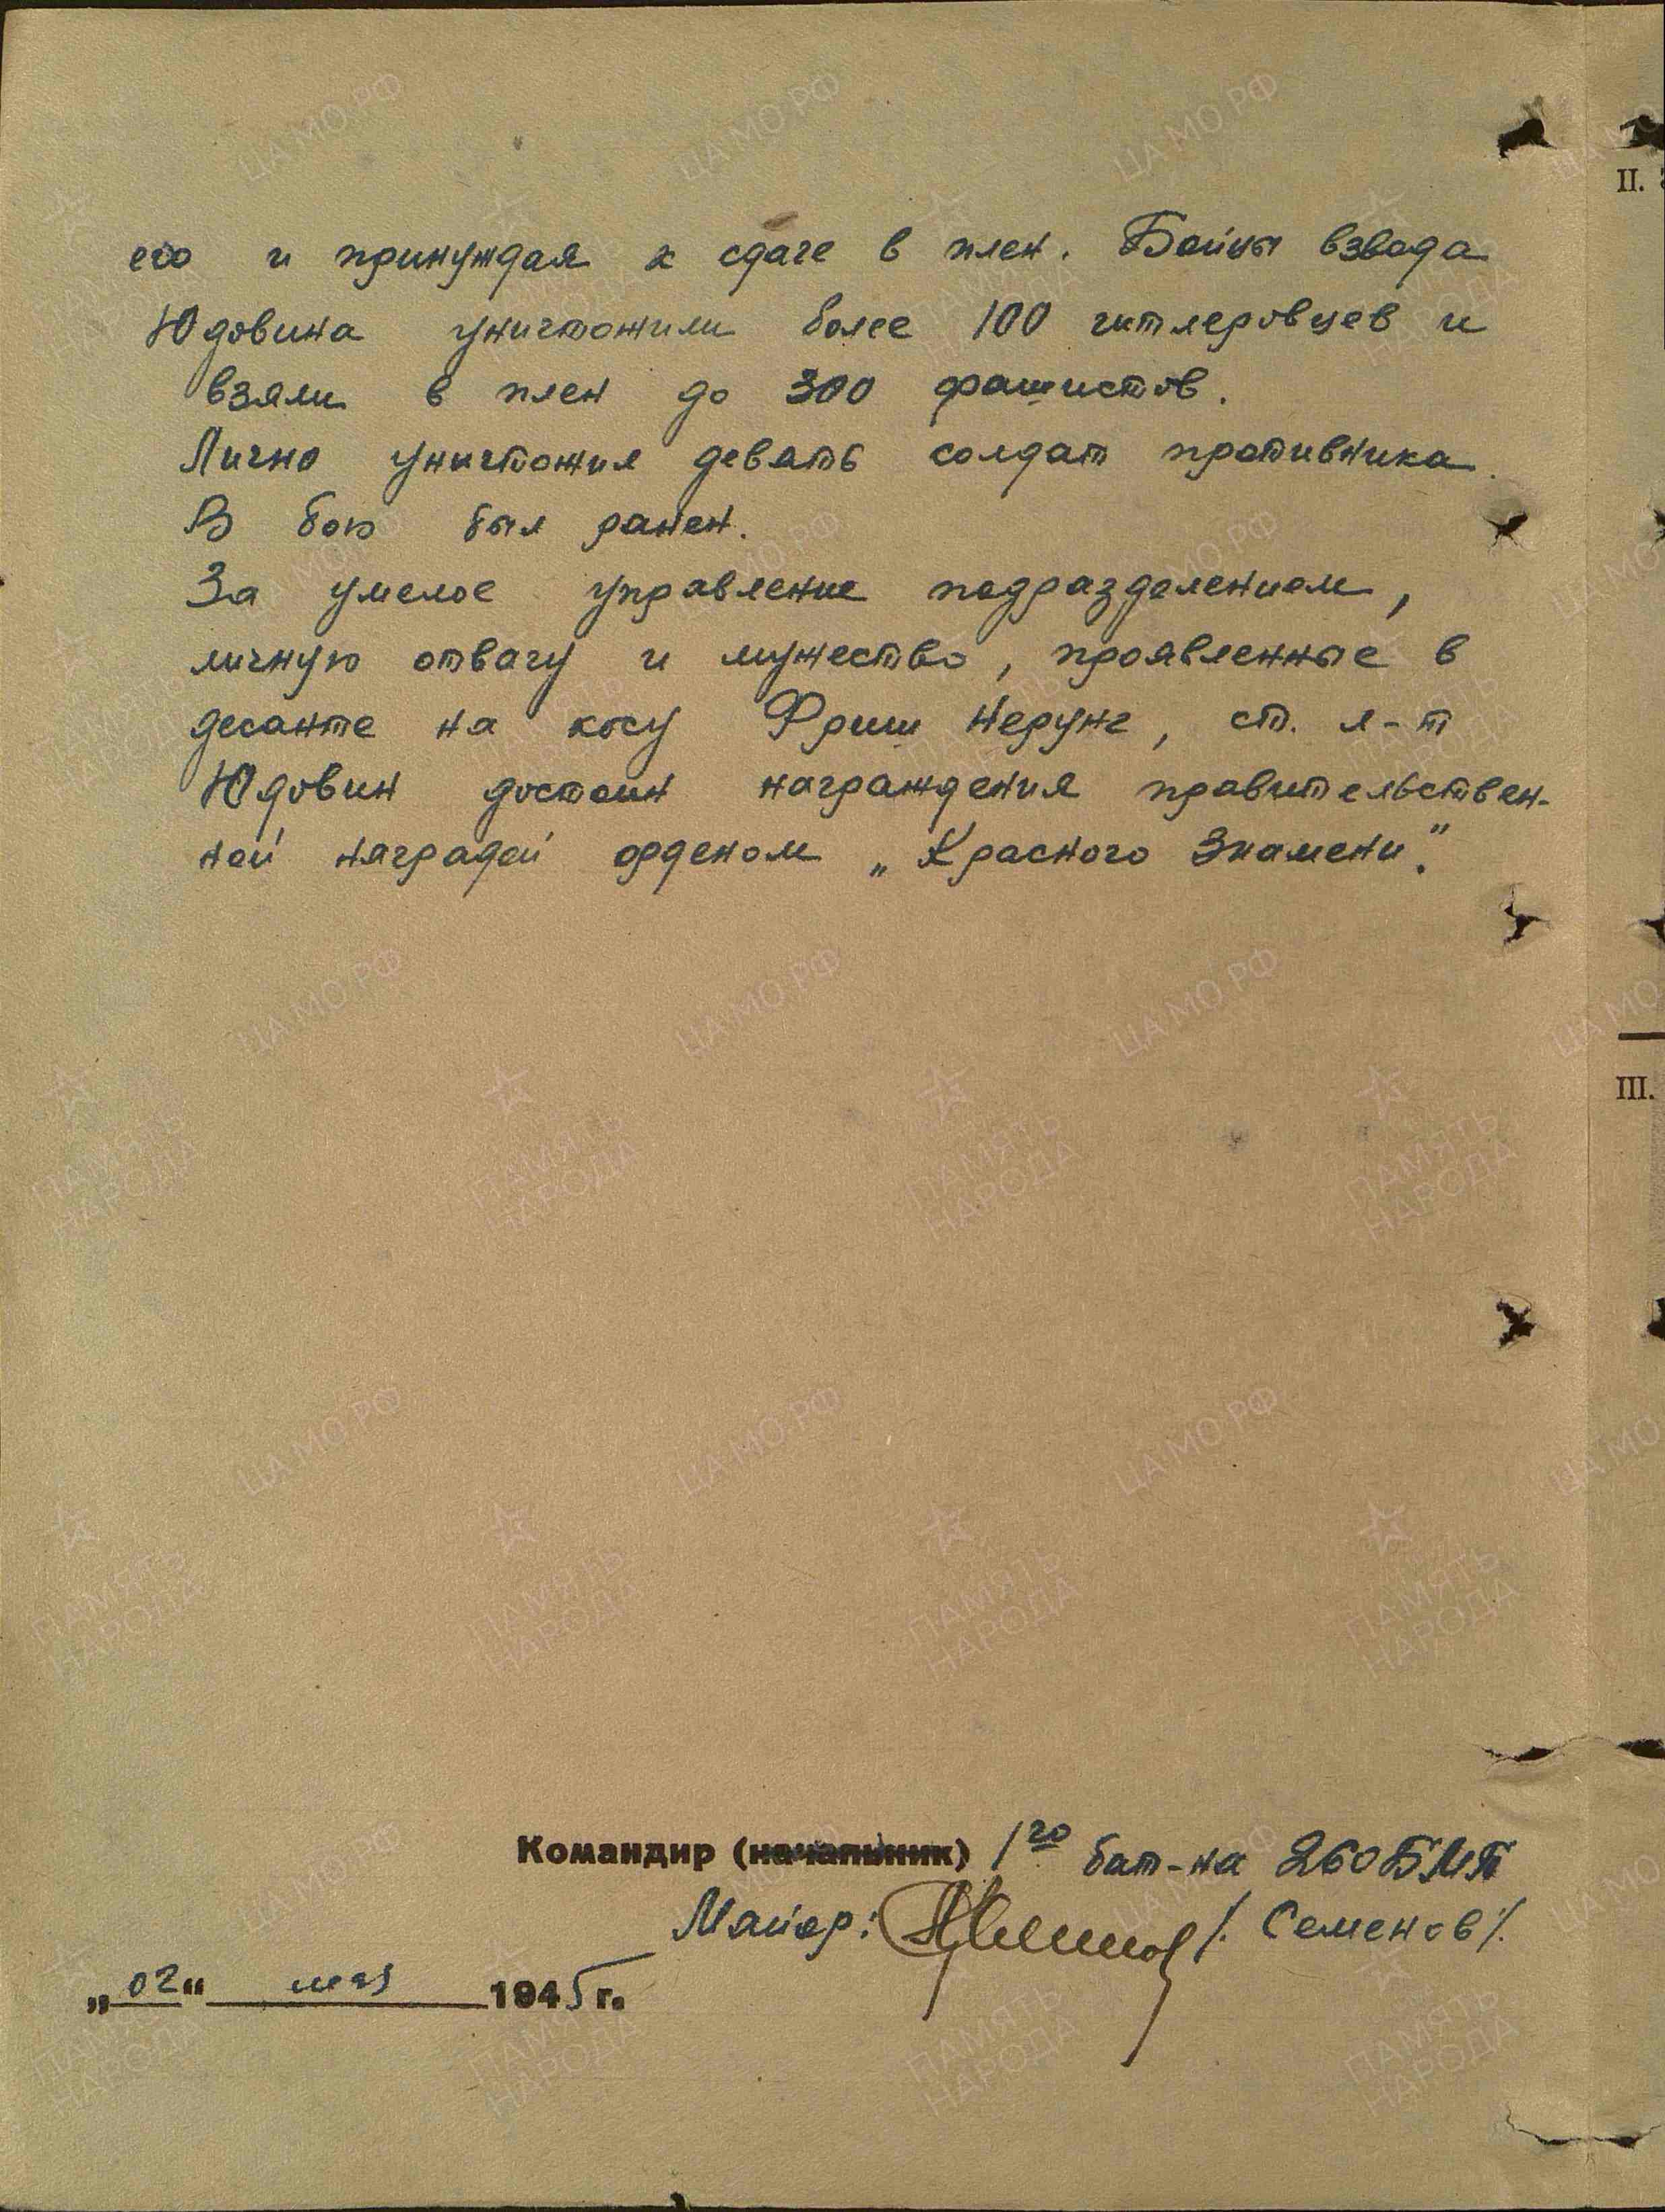 его и принуждая к сдаче в плен. Бойцы взвода
Юдовина уничтожили более 100 гитлеровцев и
взяли в плен до 300 фашистов.
Лично уничтожил девять солдат противника.
В бою был ранен.
За умелое управление подразделением,
личную отвагу и мужество, проявленные в
десанте на косу Фриш Нерунг, ст. л-т
Юдовин достоин награждения правительствен-
ной наградой орденом „Красного Знамени".
Командир (начальник) 1го бат-на 260 БМП
Майор: /. Семенов/.
„02“ мая 1945 г.
II.
III.
ЦА МО РФ
ПАМЯТЬ
НАРОДА